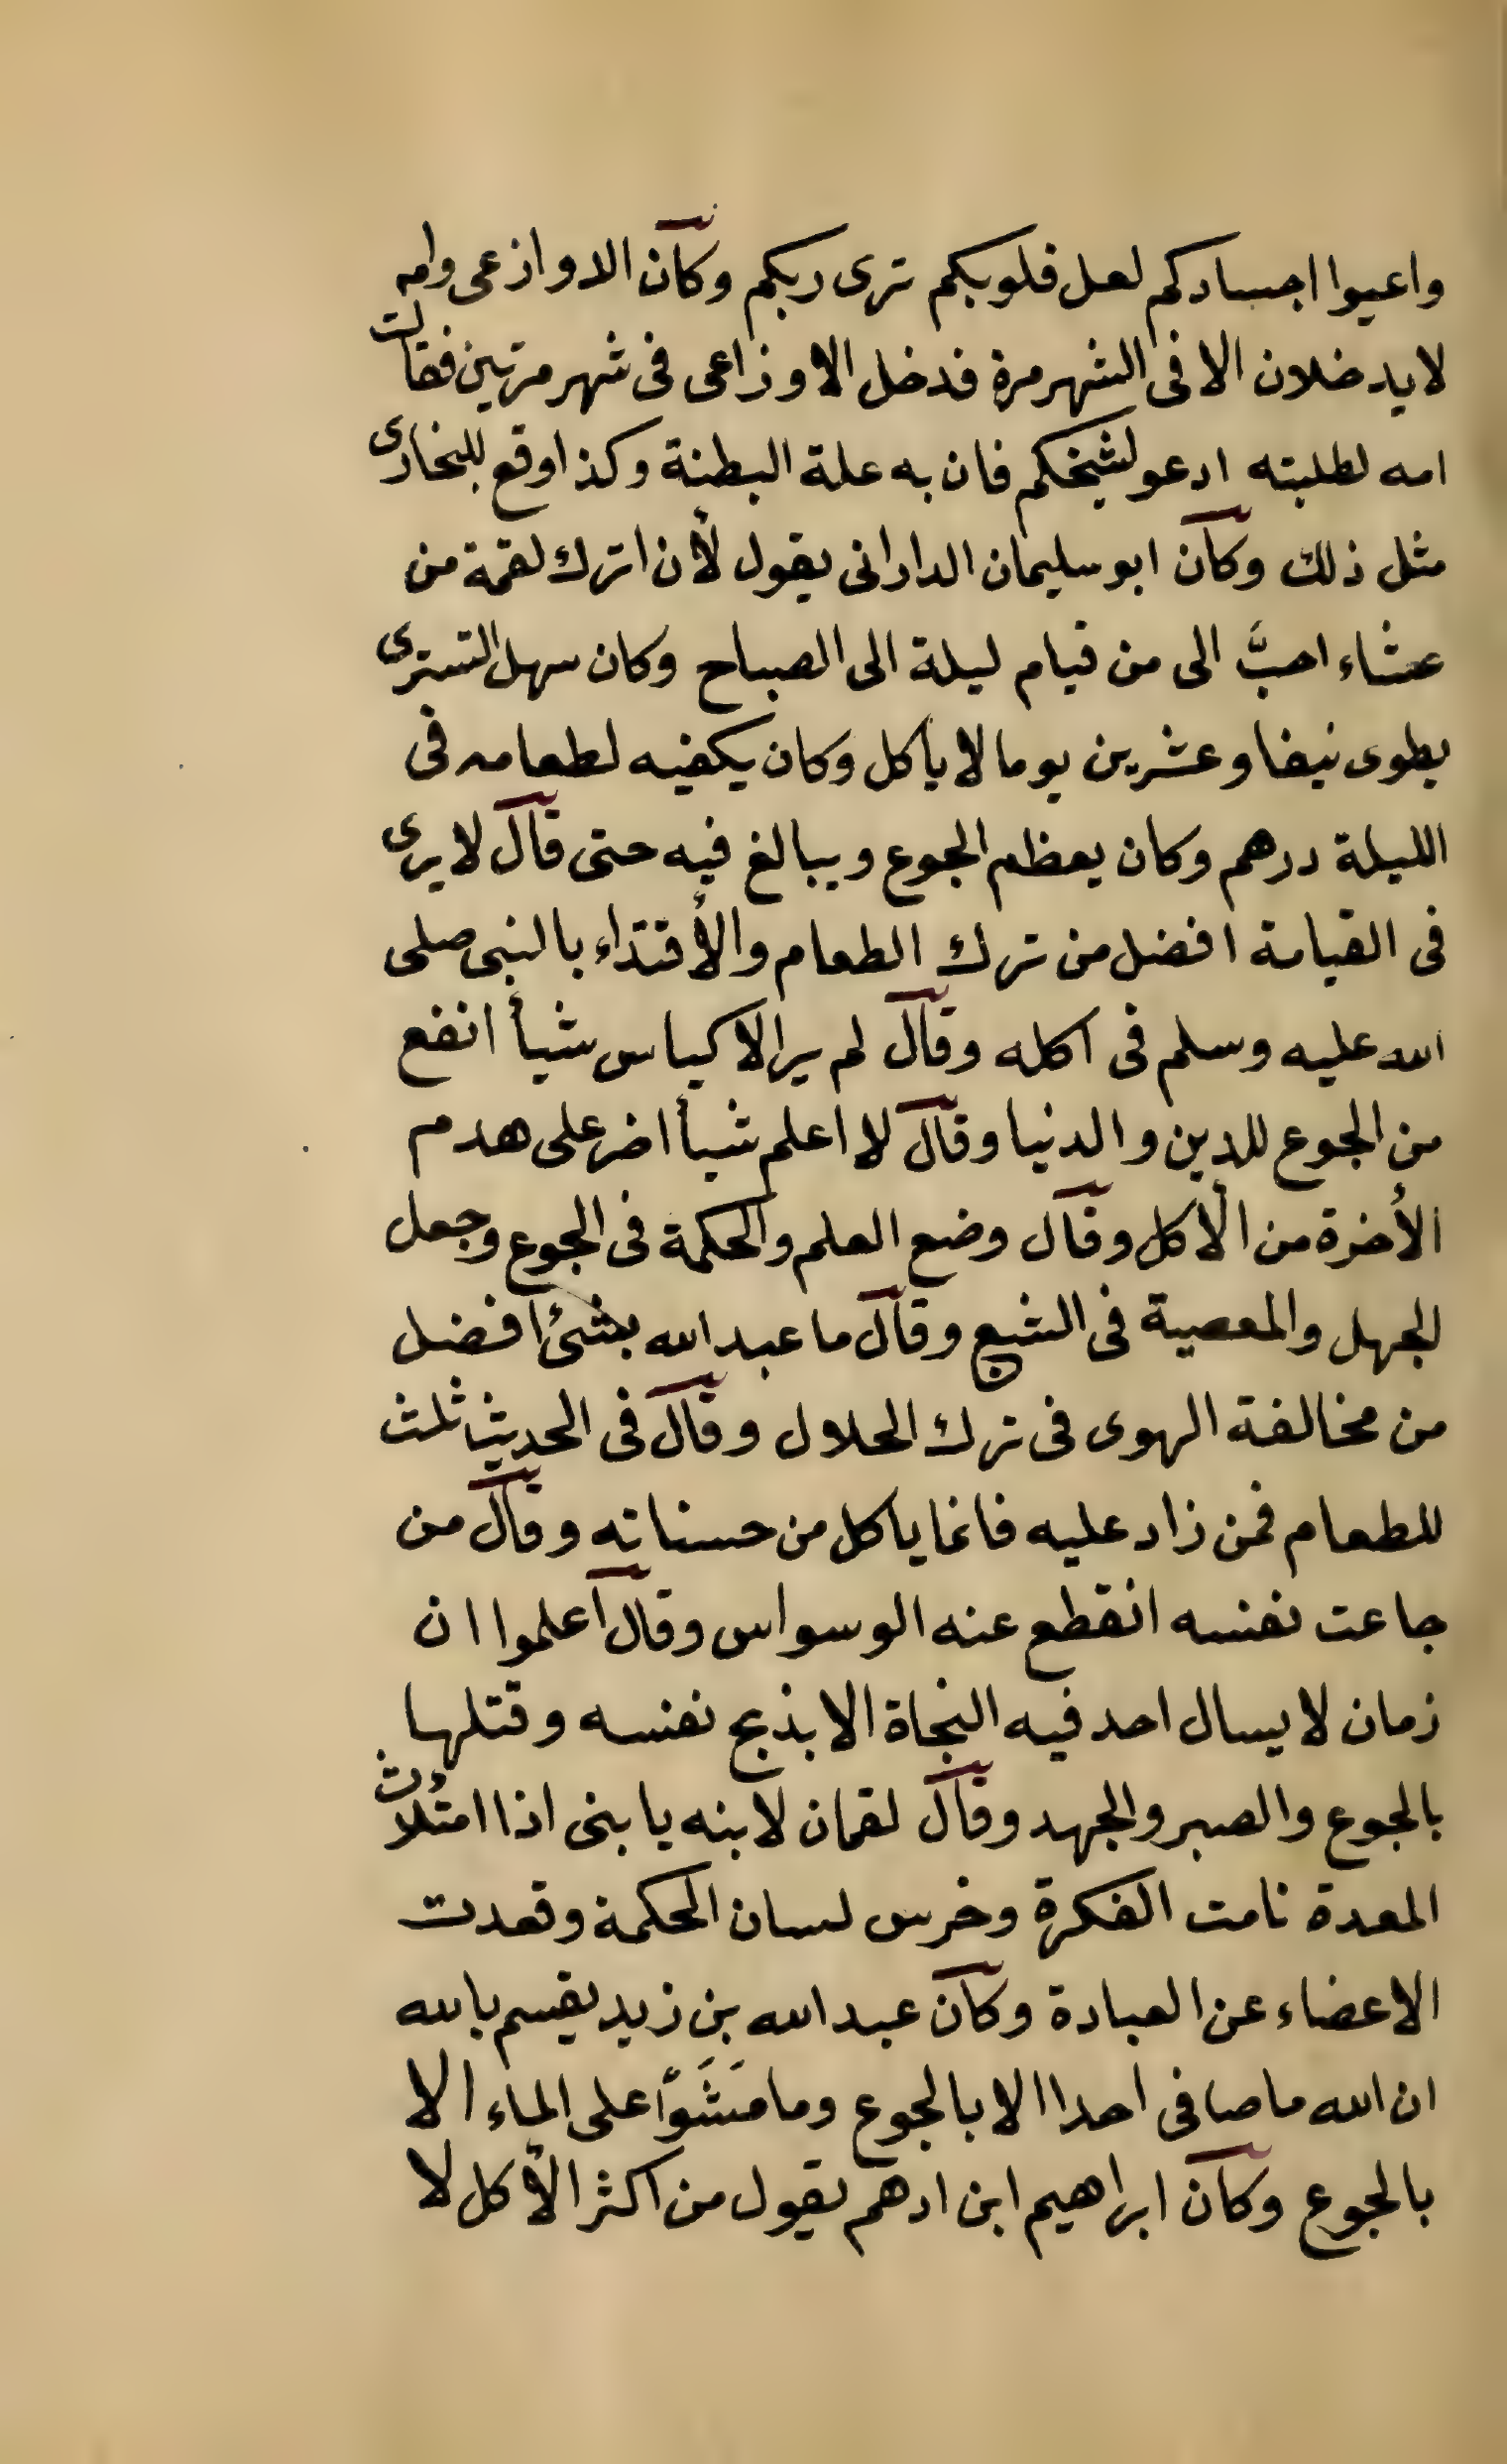 واعيوا اجسادكم لعل قلوبكم ترى ربكم وكان الاوازعى وامه
لايدخلان الا فى الشهر مرة فدخل الاوزاعى فى شهر مرتين فقالت
امه لطلبته ادعو لشيخكم فان به علة البطنة وكذا وقع للبخارى
مثل ذلك وكان ابو سليمان الدارانى يقول لأن اترك لقمة من
عشاء احبَّ الى من قيام ليلة الى الصباح وكان سهل التسترى
يطوى نيفا وعشرين يوما لا يأكل وكان يكفيه لطعامه فى
الليلة درهم وكان يعظم الجوع ويبالغ فيه حتى قال لا يرى
فى القيامة افضل من ترك الطعام والأقتداء بالنبى صلى
الله عليه وسلم فى اكله وقال لم ير الاكياس شيأ انفع
من الجوع للدين والدنيا وقال لا اعلم شيأ اضر على هدم
الأخرة من الأكل وقال وضع العلم والحكمة فى الجوع وجعل
الجهل والمعصية فى الشبع وقال ما عبد الله بشئ افضل
من مخالفة الهوى فى ترك الحلال وقال فى الحديث ثلث
للطعام فمن زاد عليه فانما ياكل من حسناته وقال من
جاعت نفسه انقطع عنه الوسواس وقال اعلموا ان
زمان لا يسال احد فيه النجاة الا بذبح نفسه وقتلها
بالجوع والصبر والجهد وقال لقمان لابنه يا بنى اذا امتلأت
المعدة نامت الفكرة وخرس لسان الحكمة وقعدت
الاعضاء عن العبادة وكان عبد الله بن زيد يقسم بالله
ان الله ما صافى احدا الا بالجوع وما مَشَوْا على الماء الا
بالجوع وكان ابراهيم ابن ادهم يقول من اكثر الأكل لا